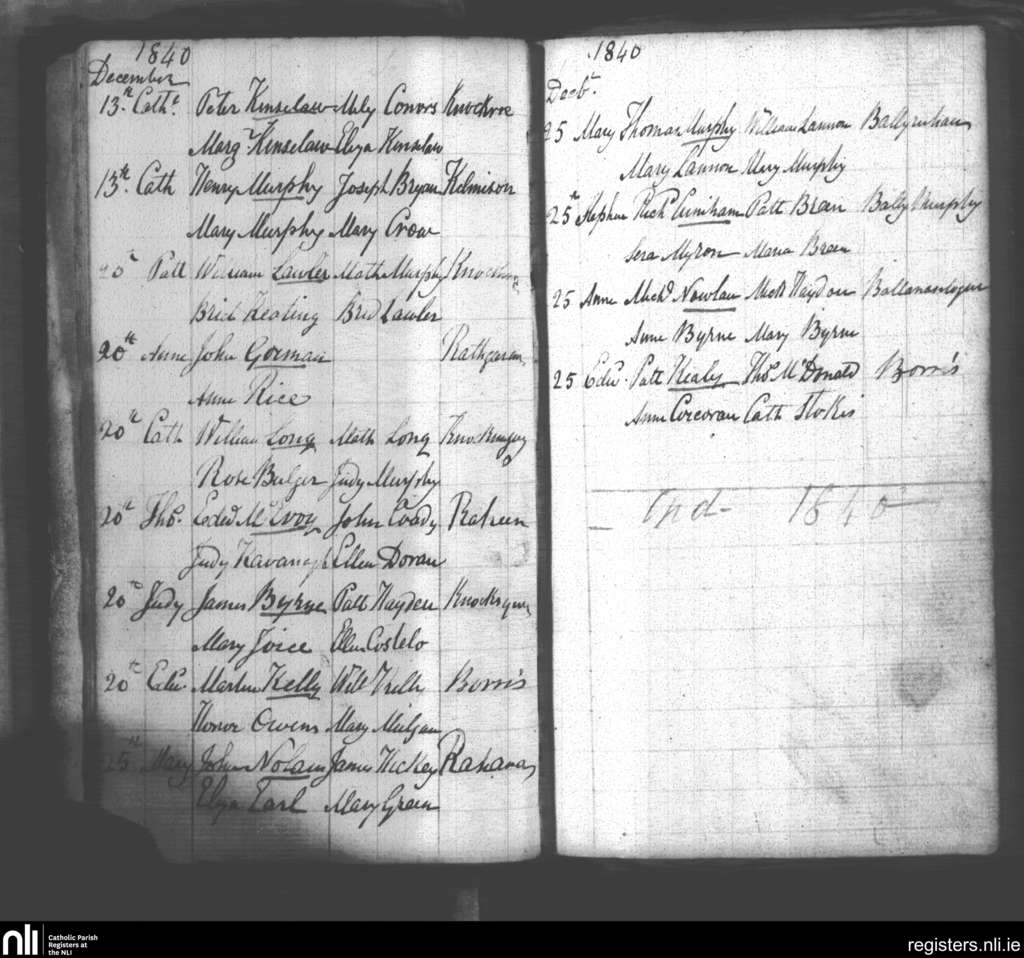 1840
December
13th Cathe Peter Kinselaw Mily Conors Knockroe
Margt Kinselaw Eliza Kinselaw
13th Cath Henry Murphy Joseph Bryan Kilmison
Mary Murphy Mary Crow
20th Patt William Lawler Math Murphy
Brid Keating Brid Lawler
20th Anne John Gorman
Anne Rice
20th Cath William Long Math Long
Rose Bulger Judy Murphy
20th Thos. Edwd McEvoy John Coady Raheen
Judy Kavanagh Ellen Doran
20th Judy James Byrne Patt Hayden
Mary Joice Ellen Costelo
20th Edw Martin Kelly Will Kelly Borris
Honor Owens Mary
25th Mary John Nolan James Hickey Rahana
Eliza Earl Mary Green
1840
Decbr.
25 Mary Thomas Murphy William Lannon
Mary Lannon Mary Murphy
25th Stephen Richd Patt Brean Bally Murphy
Sera Myron Maria Breen
25 Anne Michd Nowlan Mick Hayden
Anne Byrne Mary Byrne
25 Edw. Patt Healy Thos McDonald Borris
Anne Corcoran Cath Stokes
End - 1840
nli
Catholic Parish
Registers at
the NLI
registers.nli.ie